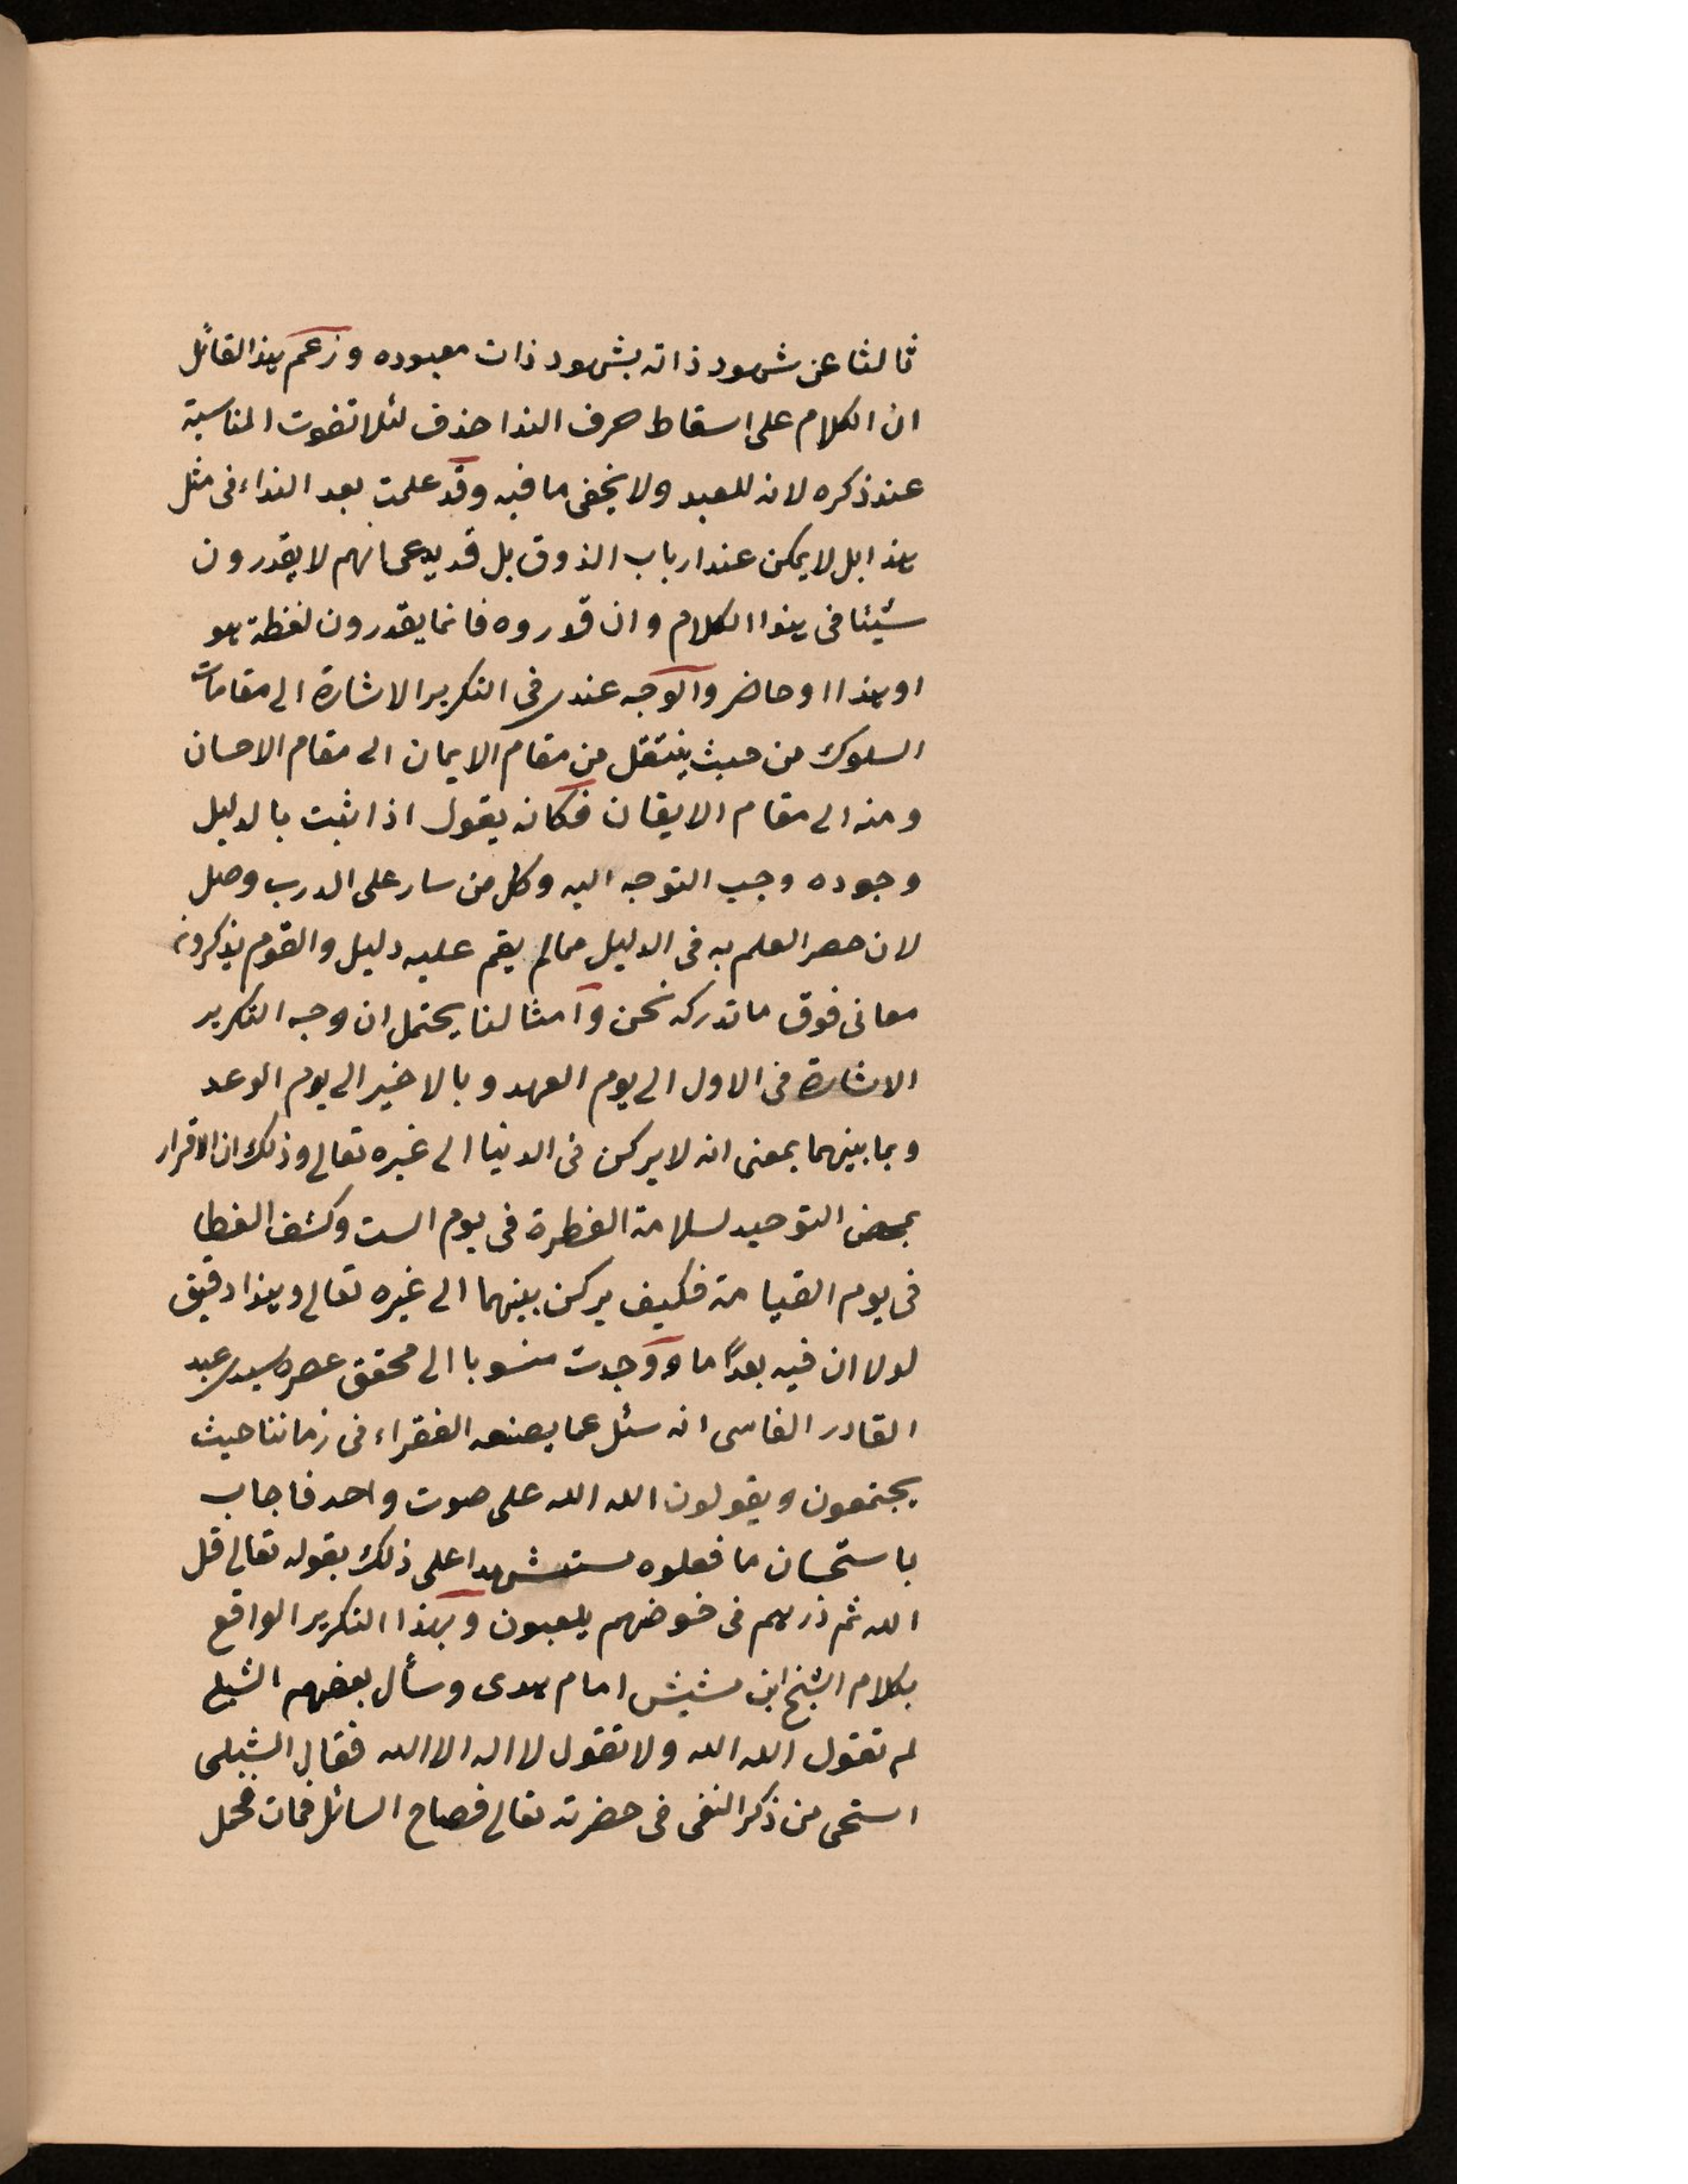 ثالثا عن شهود ذاته بشهود ذات معبوده وزعم هذا القائل
ان الكلام على اسقاط حرف الندا حذف لئلا تفوت المناسبة
عند ذكره لانه للعبد ولا يخفى ما فيه وقد علمت بعد النداء فى مثل
هذا بل لا يمكن عند ارباب الذوق بل قد يدعى انهم لا يقدرون
شيئا فى هذا الكلام وان قدروه فانما يقدرون لفظة هو
او هذا او حاضر والوجه عندى فى التكرير الاشارة الى مقامات
السلوك من حيث ينتقل من مقام الايمان الى مقام الاحسان
ومنه الى مقام الايقان فكانه يقول اذا ثبت بالدليل
وجوده وجب التوجه اليه وكل من سار على الدرب وصل
لان حصر العلم به فى الدليل مما لم يقم عليه دليل والقوم يذكرون
معانى فوق ما تدركه نحن وامثالنا يحتمل ان وجه التكرير
الاشارة فى الاول الى يوم العهد وبالاخير الى يوم الوعد
وبما بينهما بمعنى انه لا يركن فى الدنيا الى غيره تعالى وذلك ان الاقرار
بمحض التوحيد لسلامة الفطرة فى يوم الست وكشف الغطا
فى يوم القيامة فكيف يركن بينهما الى غيره تعالى وهذا دقيق
لولا ان فيه بعدًا ما ووجدت منسوبا الى محقق عصره سيدى عبد
القادر الفاسى انه سئل عما يصنعه الفقراء فى زماننا حيث
يجتمعون ويقولون الله الله على صوت واحد فاجاب
باستحسان ما فعلوه مستشهدا على ذلك بقوله تعالى قل
الله ثم ذرهم فى خوضهم يلعبون وبهذا التكرير الواقع
بكلام الشيخ ابن مشيش امام هدى وسأل بعضهم الشبلى
لم تقول الله الله ولا تقول لا اله الا الله فقال الشبلى
استحى من ذكر النفى فى حضرته تعالى فصاح السائل فمات فحمل